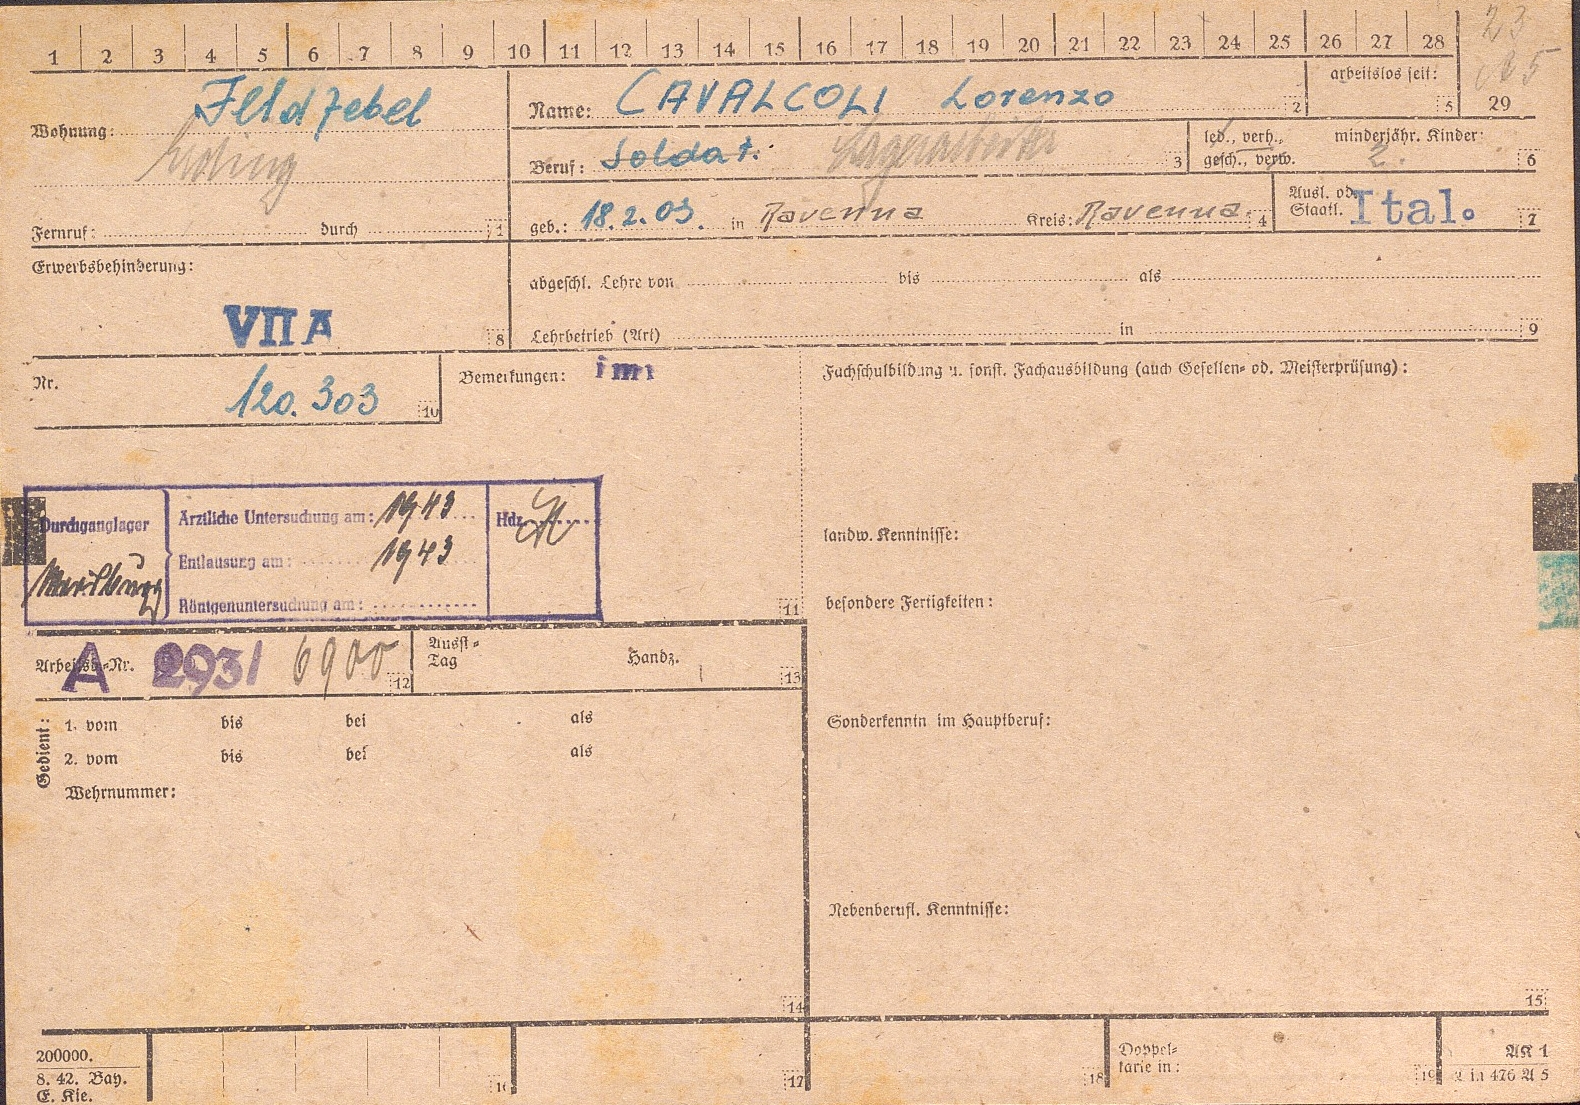 1 2 3 4 5 6 7 8 9 10 11 12 13 14 15 16 17 18 19 20 21 22 23 24 25 26 27 28 29
23
Wohnung:
Name: CAVALCOLI Lorenzo 2
arbeitslos seit: 5
Beruf: Soldat. Lagerarbeiter 3
led., verh., gesch., verw.
minderjähr. Kinder: 2. 6
Fernruf: durch 1
geb.: 18.2.03. in Ravenna Kreis: Ravenna. 4
Ausl. od. Staatl. Ital. 7
Erwerbsbehinderung:
VII A 8
abgeschl. Lehre von bis als
Lehrbetrieb (Art) in 9
Nr. 120.303 10
Bemerkungen: imi
Fachschulbildung u. sonst. Fachausbildung (auch Gesellen- od. Meisterprüfung):
Durchganglager
Ärztliche Untersuchung am: 1943
Hdz.
Entlausung am: 1943
Röntgenuntersuchung am:
11
landw. Kenntnisse:
besondere Fertigkeiten:
Arbeitsb.-Nr. A 293/ 6900 12
Ausst-Tag Handz. 13
Gedient:
1. vom bis bei als
2. vom bis bei als
Wehrnummer:
14
Sonderkenntn im Hauptberuf:
Nebenberufl. Kenntnisse:
15
200000.
8. 42. Bay.
E. Kie.
16
17
18
Doppel-
karte in:
19
AK 1
2 in 476 A 5